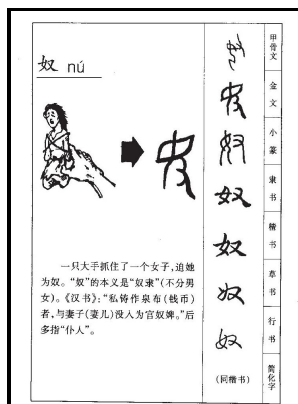 奴 nú
一只大手抓住了一个女子,迫她
为奴。“奴”的本义是“奴隶”(不分男
女)。《汉书》:“私铸作泉布(钱币)
者,与妻子(妻儿)没入为官奴婢。”后
多指“仆人”。
甲骨文
金文
小篆
隶书
楷书
草书
行书
简化字
奴
奴
奴
奴
奴
(同楷书)